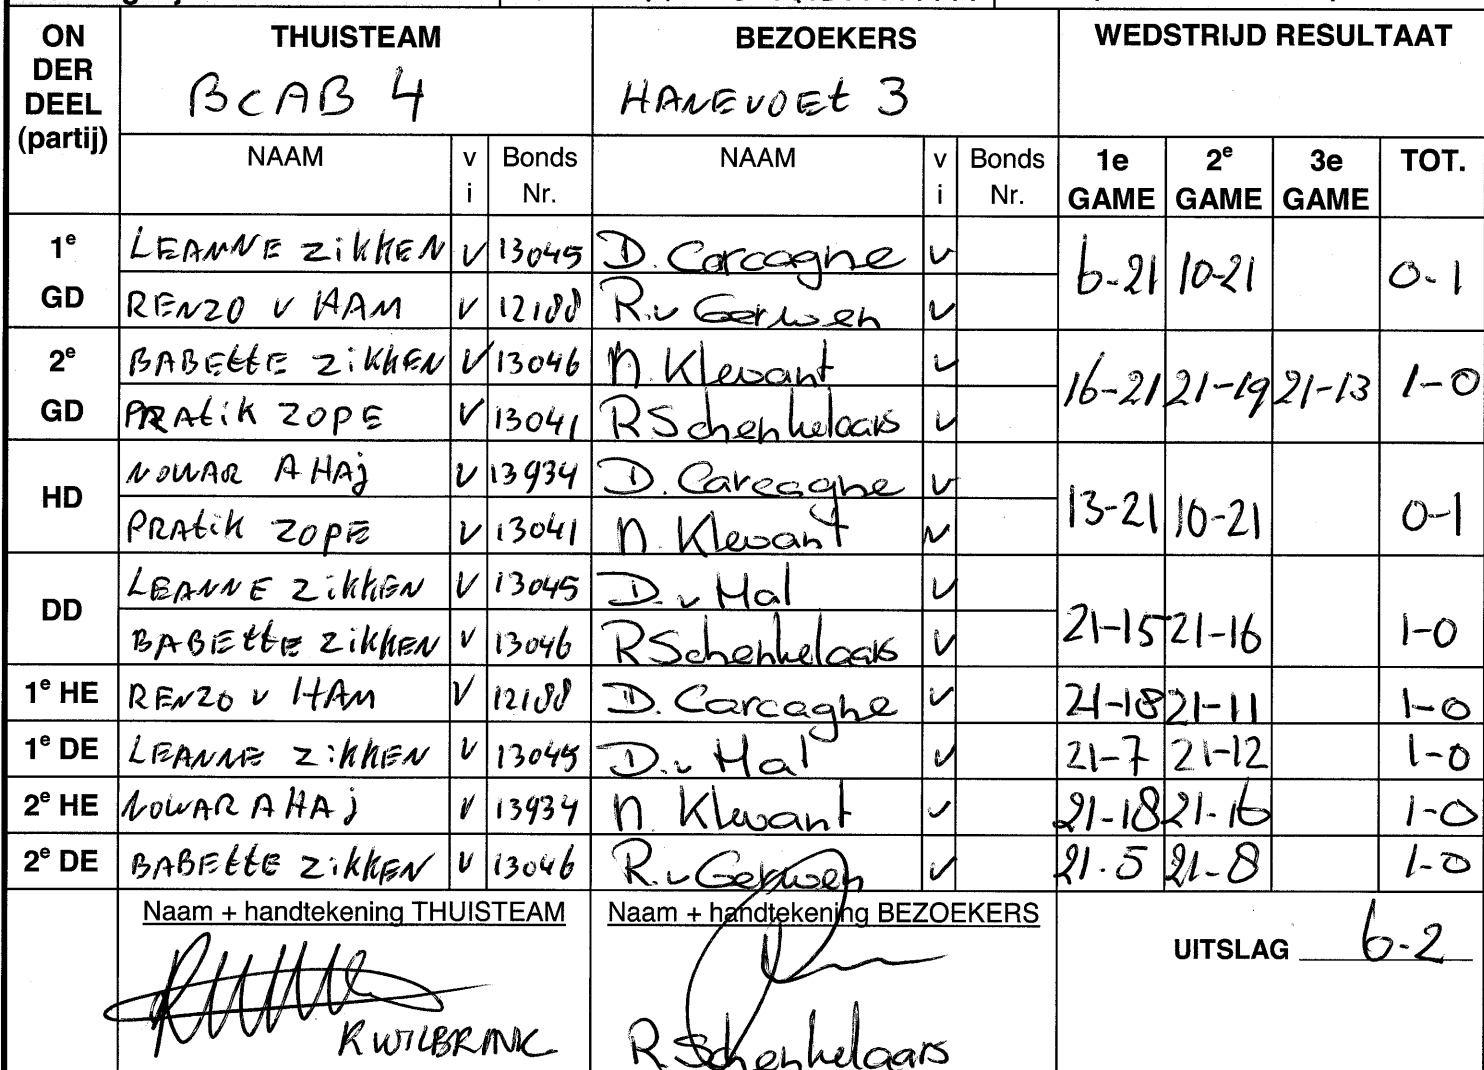 ON DER DEEL (partij) THUISTEAM BEZOEKERS WEDSTRIJD RESULTAAT
BCAB 4 HANEVOET 3
NAAM v i Bonds Nr. NAAM v i Bonds Nr. 1e GAME 2e GAME 3e GAME TOT.
1e GD LEANNE ZiKKEN v 13045 D. Carcagne v 6-21 10-21 0-1
RENZO v HAM v 12188 R. v Gerwen v
2e GD BABEttE ZiKKEN v 13046 N. Klewant v 16-21 21-19 21-13 1-0
PRAtiK ZOPE v 13041 R Schenkelaars v
HD NOWAR A HAj v 13934 D. Carcagne v 13-21 10-21 0-1
PRAtiK ZOPE v 13041 N. Klewant v
DD LEANNE ZiKKEN v 13045 D. v Hal v 21-15 21-16 1-0
BABEttE ZiKKEN v 13046 R Schenkelaars v
1e HE RENZO v HAM v 12188 D. Carcagne v 21-18 21-11 1-0
1e DE LEANNE ZiKKEN v 13045 D. v Hal v 21-7 21-12 1-0
2e HE NOWAR A HAj v 13934 N Klewant v 21-18 21-16 1-0
2e DE BABEttE ZiKKEN v 13046 R. v Gerwen v 21-5 21-8 1-0
Naam + handtekening THUISTEAM Naam + handtekening BEZOEKERS
UITSLAG 6-2
R WILBRINK R. Schenkelaars